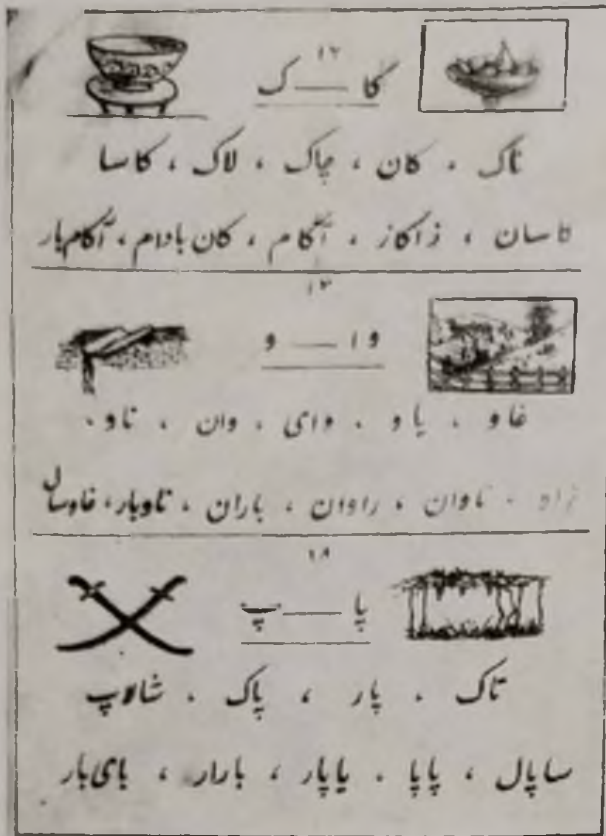 ١٢
کا — ک
تاک ، کان ، چاک ، لاک ، کاسا
کاسان ، ذاکاز ، آکام ، کان بادام ، آکام بار
١٣
وا — و
غاو ، یاو ، وای ، وان ، ناو ،
ناوان ، راوان ، باران ، ناوبار ، غاوسال
١٨
پا — پ
تاک ، پار ، پاک ، شالاپ
ساپال ، پاپا ، یاپار ، بارار ، بای بار